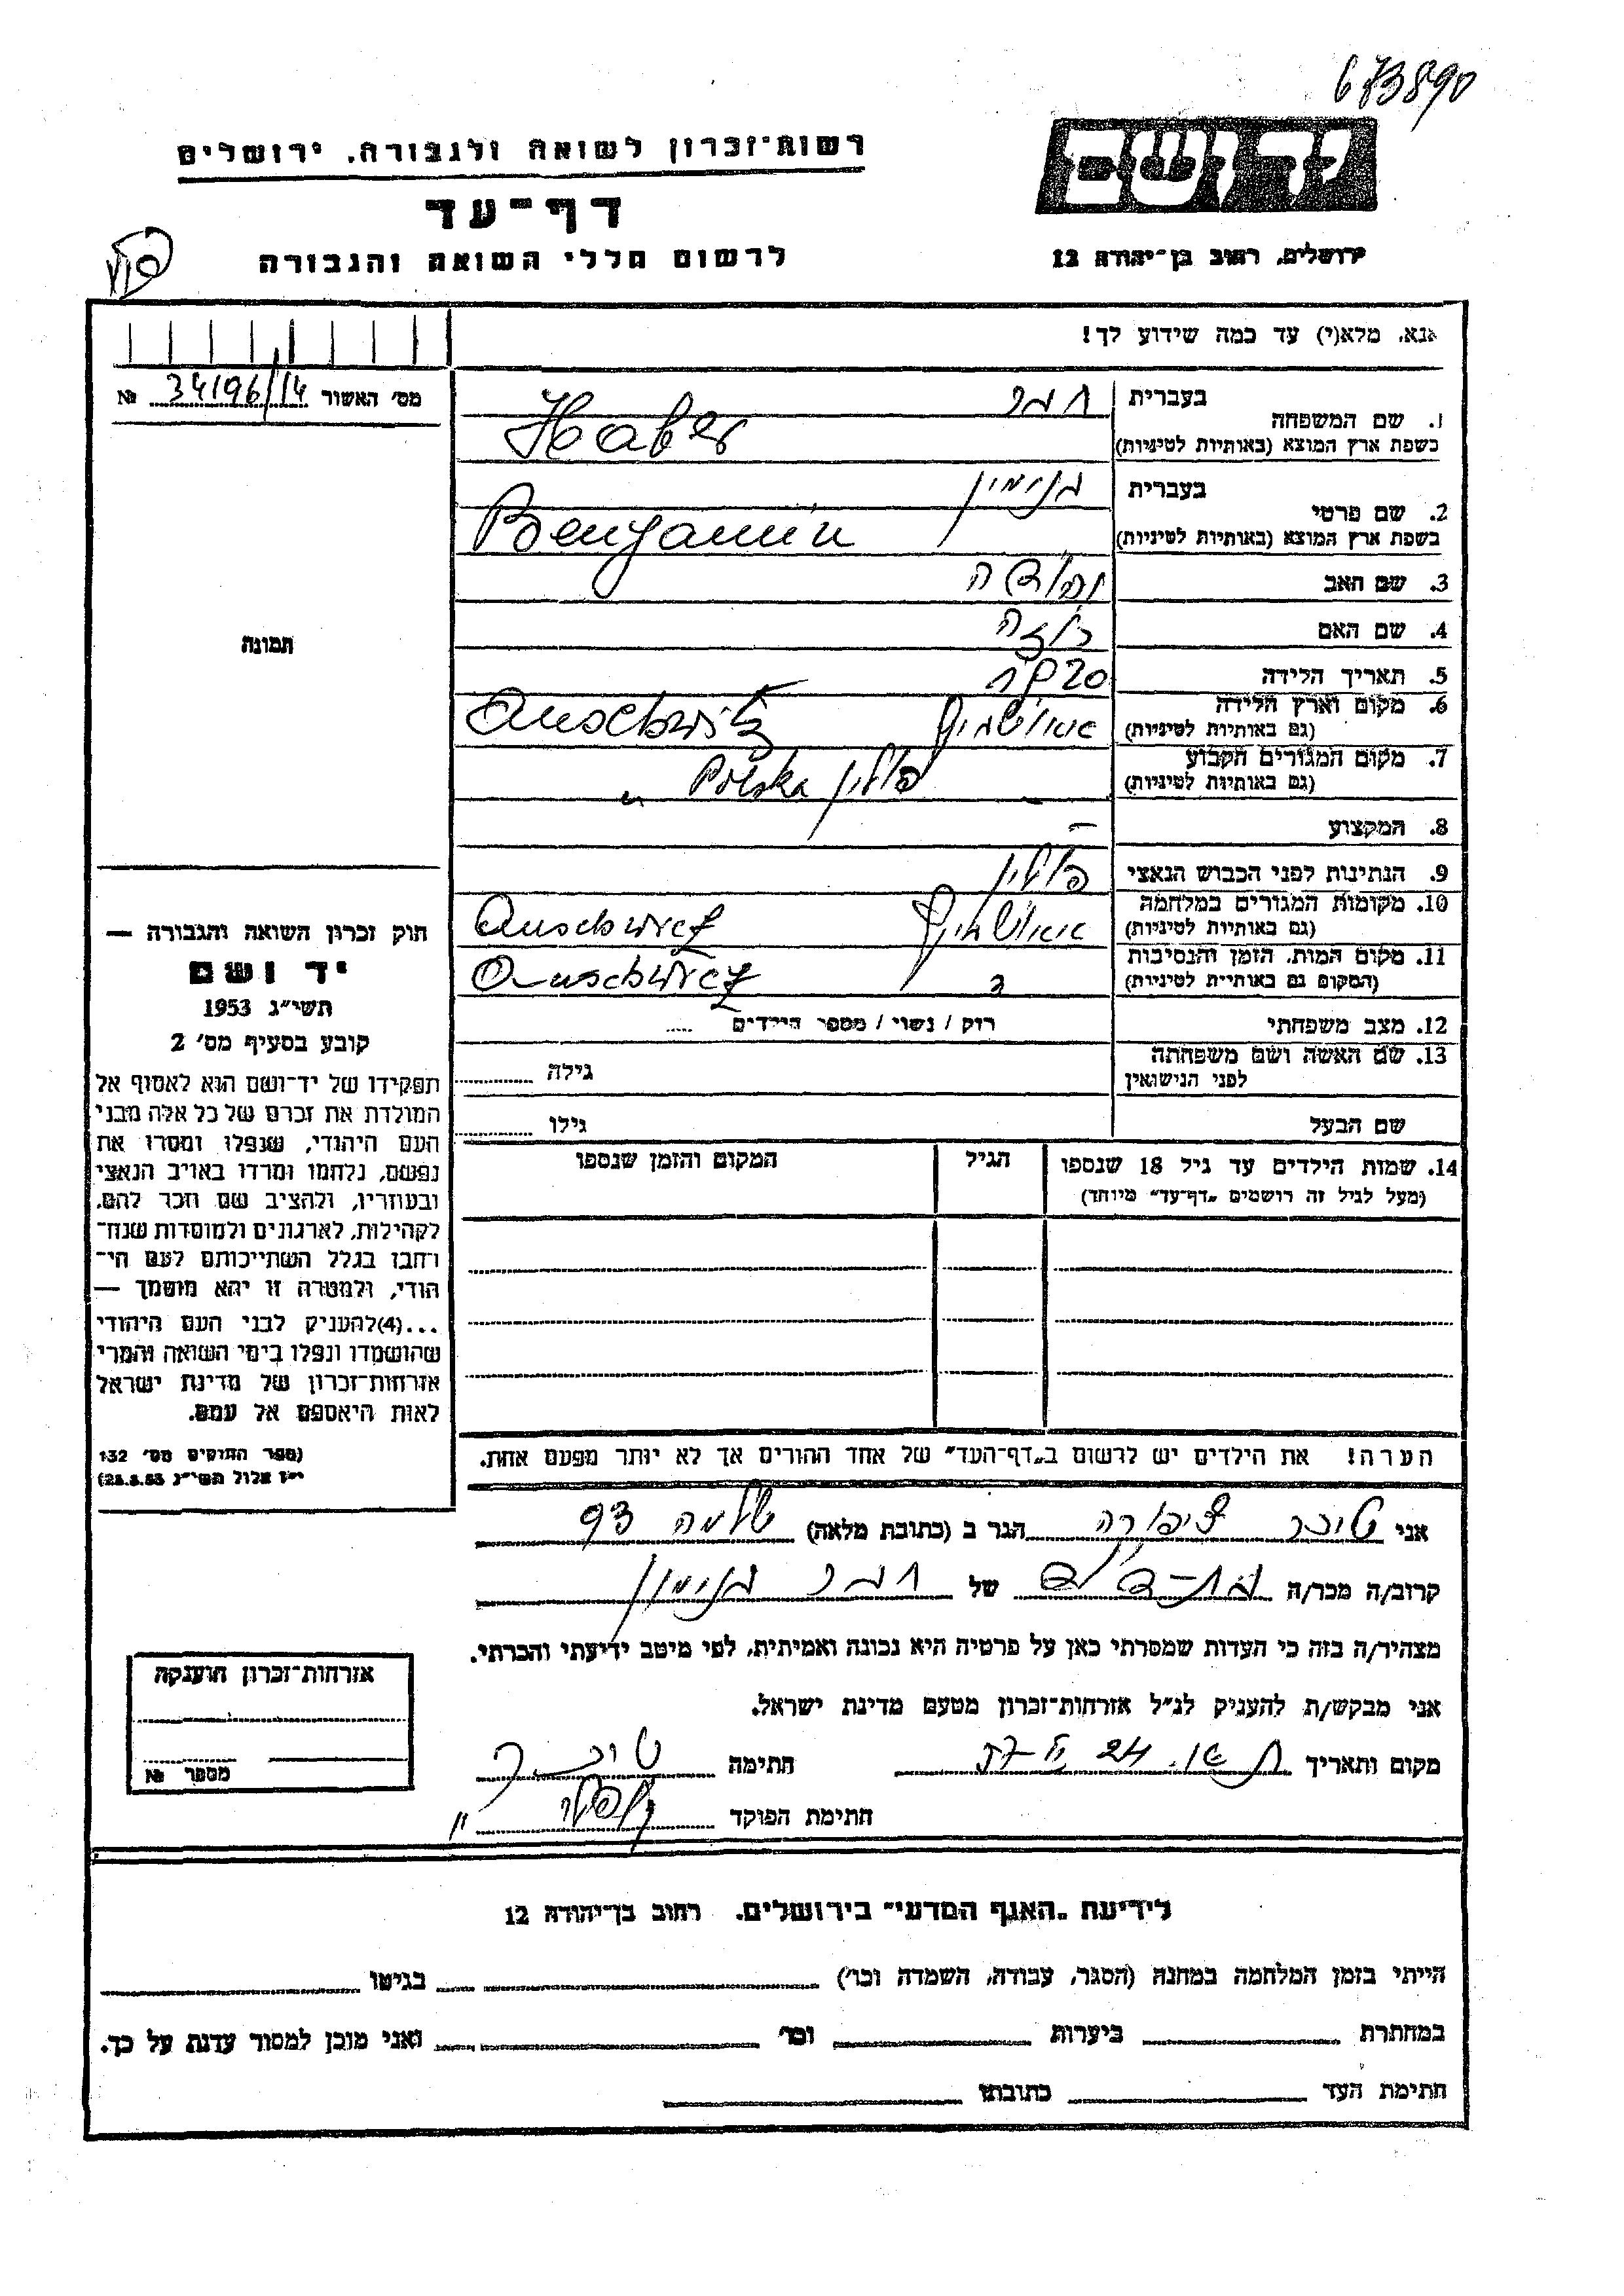 673890
יד ושם
רשות־זכרון לשואה ולגבורה, ירושלים
דף־עד
לרשום חללי השואה והגבורה
ירושלים, רחוב בן־יהודה 12
אנא, מלא(י) עד כמה שידוע לך!
מס׳ האשור 34196/14 №
1. שם המשפחה
בעברית הבר
בשפת ארץ המוצא (באותיות לטיניות) Haber
2. שם פרטי
בעברית בנימין
בשפת ארץ המוצא (באותיות לטיניות) Benjamin
3. שם האב
4. שם האם רוזה
5. תאריך הלידה
6. מקום וארץ הלידה
(גם באותיות לטיניות) אושוויץ Auschwitz
7. מקום המגורים הקבוע
(גם באותיות לטיניות) פולין Polska
8. המקצוע –
9. הנתינות לפני הכבוש הנאצי פולין
10. מקומות המגורים במלחמה
(גם באותיות לטיניות) Auschwitz
11. מקום המות, הזמן והנסיבות
(המקום גם באותיות לטיניות) Auschwitz
12. מצב משפחתי רוק / נשוי / מספר הילדים .....
13. שם האשה ושם משפחתה
לפני הנישואין גילה
שם הבעל גילו
14. שמות הילדים עד גיל 18 שנספו
(מעל לגיל זה רושמים „דף־עד" מיוחד)
הגיל
המקום והזמן שנספו
תמונה
חוק זכרון השואה והגבורה —
יד ושם
תשי״ג 1953
קובע בסעיף מס׳ 2
תפקידו של יד־ושם הוא לאסוף אל
המולדת את זכרם של כל אלה מבני
העם היהודי, שנפלו ומסרו את
נפשם, נלחמו ומרדו באויב הנאצי
ובעוזריו, ולהציב שם וזכר להם,
לקהילות, לארגונים ולמוסדות שנח־
רחבו בגלל השתייכותם לעם הי־
הודי, ולמטרה זו יהא מוסמך —
...(4)להעניק לבני העם היהודי
שהושמדו ונפלו בימי השואה והמרי
אזרחות־זכרון של מדינת ישראל
לאות היאספם אל עמם.
(ספר החוקים מס׳ 132
י״ז אלול תשי״ג 28.8.53)
הערה! את הילדים יש לרשום ב„דף־העד" של אחד ההורים אך לא יותר מפעם אחת.
אני ציפורה הגר ב (כתובת מלאה) שלמה 93
קרוב/ה מכר/ה בת-דודה של הבר בנימין
מצהיר/ה בזה כי העדות שמסרתי כאן על פרטיה היא נכונה ואמיתית, לפי מיטב ידיעתי והכרתי.
אני מבקש/ת להעניק לנ״ל אזרחות־זכרון מטעם מדינת ישראל.
מקום ותאריך חתימה
חתימת הפוקד
אזרחות־זכרון הוענקה
מספר №
לידיעת „האגף המדעי" בירושלים, רחוב בן־יהודה 12
הייתי בזמן המלחמה במחנה (הסגר, עבודה, השמדה וכו׳) בגיטו
במחתרת ביערות וכו׳ ואני מוכן למסור עדות על כך.
חתימת העד כתובתו